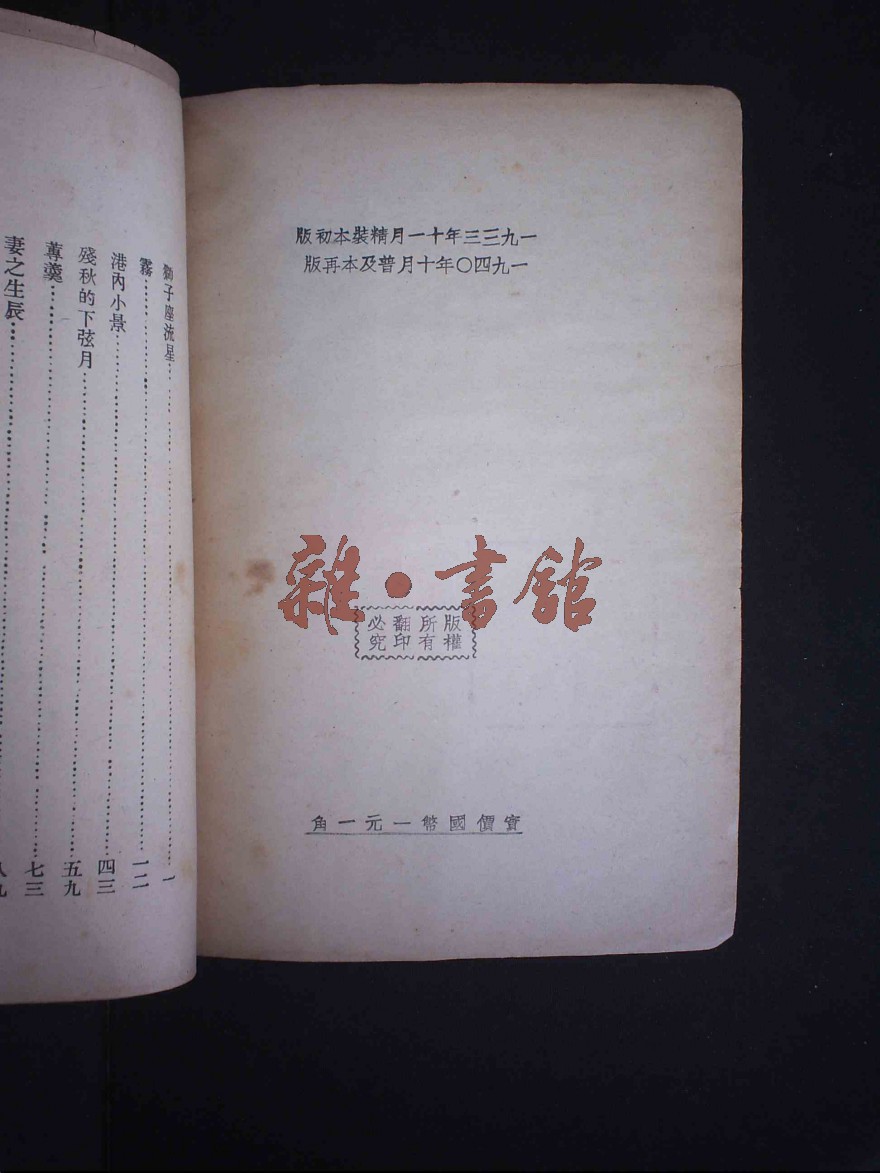 一九三三年十一月精裝本初版
一九四〇年十月普及本再版
雜·書館
版權所有
翻印必究
實價國幣一元一角
獅子座流星……一
霧……一二
港內小景……四三
殘秋的下弦月……五九
蓴羹……七三
妻之生辰……八九